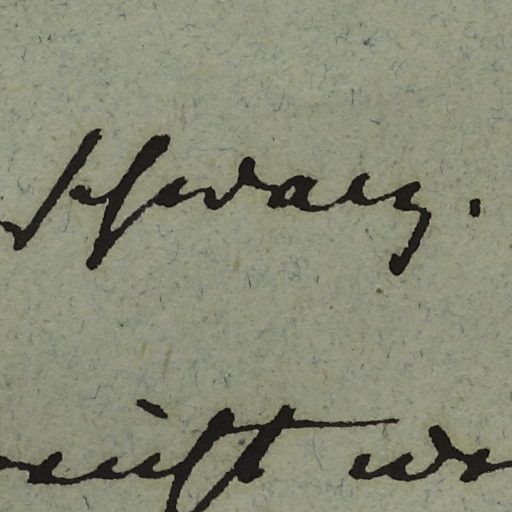 schwarz.
nicht